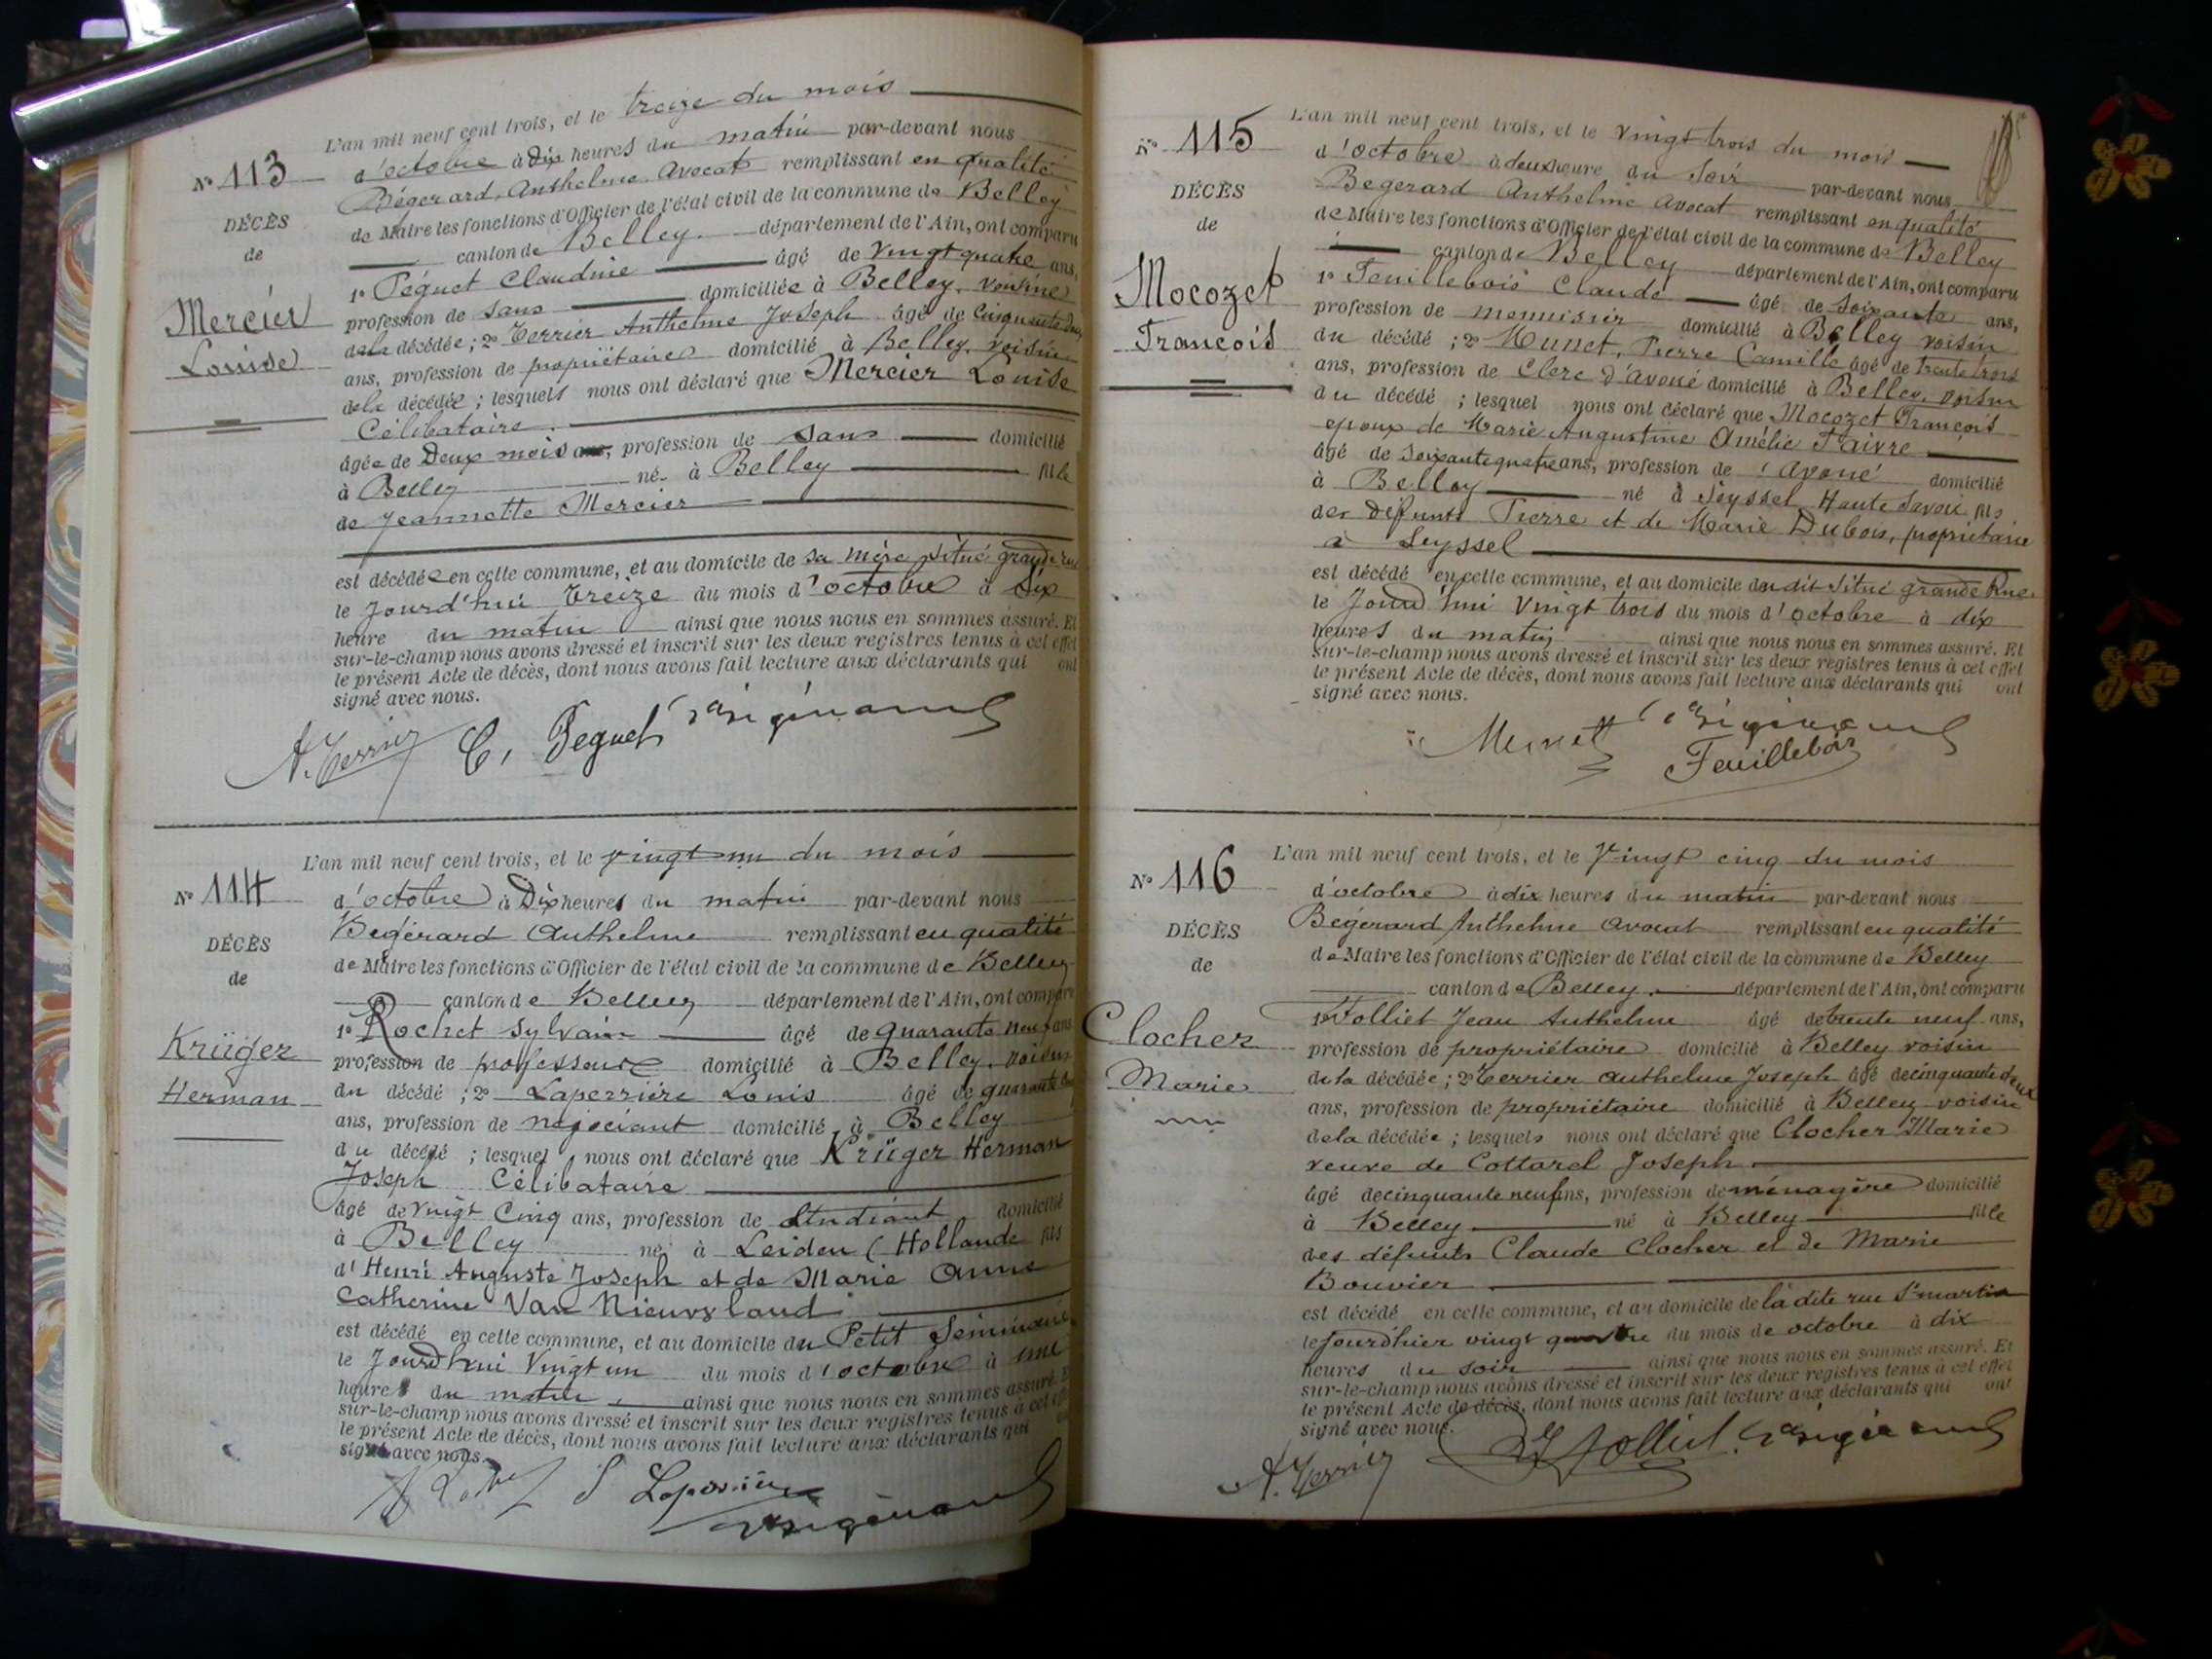 L'an mil neuf cent trois, et le treize du mois
N° 113
d'octobre à dix heures du matin par-devant nous
Bégerard, Anthelme, Avocat remplissant en qualité
DÉCÈS
de Maire les fonctions d'Officier de l'état civil de la commune de Belley
de
canton de Belley. département de l'Ain, ont comparu
1° Péguet Claudine âgé de vingt quatre ans,
Mercier
profession de sans domiciliée à Belley, voisine
Louise
de la décédée; 2° Terrier Anthelme Joseph âgé de cinquante deux
ans, profession de propriétaire domicilié à Belley, voisin
de la décédée; lesquels nous ont déclaré que Mercier Louise
Célibataire.
âgée de Deux mois ans, profession de sans domicilié
à Belley né à Belley fille
de Jeannette Mercier
est décédée en cette commune, et au domicile de sa mère situé grande rue
le jourd'hui treize du mois d'octobre à six
heure du matin ainsi que nous nous en sommes assuré. Et
sur-le-champ nous avons dressé et inscrit sur les deux registres tenus à cet effet
le présent Acte de décès, dont nous avons fait lecture aux déclarants qui ont
signé avec nous.
A. Terrier C. Peguet
L'an mil neuf cent trois, et le vingt un du mois
N° 114
d'octobre à Dix heures du matin par-devant nous
Bégérard Anthelme remplissant en qualité
DÉCÈS
de Maire les fonctions d'Officier de l'état civil de la commune de Belley
de
canton de Belley département de l'Ain, ont comparu
1° Rochet Sylvain âgé de quarante neuf ans
Krüger
profession de professeur domicilié à Belley, voisin
Herman
du décédé; 2° Laperrière Louis âgé de quarante
ans, profession de négociant domicilié à Belley
du décédé; lesquel nous ont déclaré que Krüger Herman
Joseph Célibataire
âgé de vingt cinq ans, profession de étudiant domicilié
à Belley né à Leiden (Hollande fils
d'Henri Auguste Joseph et de Marie Anne
Catherine Van Nieuvsland
est décédé en cette commune, et au domicile du Petit Séminaire
le jourd'hui vingt un du mois d'octobre à une
heure du matin, ainsi que nous nous en sommes assuré. Et
sur-le-champ nous avons dressé et inscrit sur les deux registres tenus à cet effet
le présent Acte de décès, dont nous avons fait lecture aux déclarants qui
signé avec nous.
Laperrière
L'an mil neuf cent trois, et le vingt trois du mois
N° 115
d'octobre à deux heure du soir par-devant nous
Bégerard Anthelme avocat remplissant en qualité
DÉCÈS
de Maire les fonctions d'Officier de l'état civil de la commune de Belley
de
canton de Belley département de l'Ain, ont comparu
1° Feuillebois Claude âgé de soixante ans,
Mocozet
profession de menuisier domicilié à Belley voisin
François
du décédé; 2° Munet, Pierre Camille âgé de trente trois
ans, profession de Clerc d'avoué domicilié à Belley, voisin
du décédé; lesquel nous ont déclaré que Mocozet François
époux de Marie Augustine Amélie Faivre
âgé de soixante quatre ans, profession de avoué domicilié
à Belley né à Seyssel Haute Savoie fils
des défunts Pierre et de Marie Dubois, propriétaire
à Seyssel
est décédé en cette commune, et au domicile du dit situé grande Rue
le jourd'hui vingt trois du mois d'octobre à dix
heures du matin ainsi que nous nous en sommes assuré. Et
sur-le-champ nous avons dressé et inscrit sur les deux registres tenus à cet effet
le présent Acte de décès, dont nous avons fait lecture aux déclarants qui ont
signé avec nous.
Munet
Feuillebois
L'an mil neuf cent trois, et le vingt cinq du mois
N° 116
d'octobre à dix heures du matin par-devant nous
Bégérard Anthelme avocat remplissant en qualité
DÉCÈS
de Maire les fonctions d'Officier de l'état civil de la commune de Belley
de
canton de Belley. département de l'Ain, ont comparu
1° Folliet Jean Anthelme âgé de trente neuf ans,
Clocher
profession de propriétaire domicilié à Belley voisin
Marie
de la décédée; 2° Terrier Anthelme Joseph âgé de cinquante deux
ans, profession de propriétaire domicilié à Belley voisin
de la décédée; lesquels nous ont déclaré que Clocher Marie
veuve de Cottarel Joseph.
âgé de cinquante neuf ans, profession de ménagère domicilié
à Belley né à Belley fille
des défunts Claude Clocher et de Marie
Bouvier
est décédé en cette commune, et au domicile de la dite rue St martin
le jourd'hier vingt quatre du mois de octobre à dix
heures du soir ainsi que nous nous en sommes assuré. Et
sur-le-champ nous avons dressé et inscrit sur les deux registres tenus à cet effet
le présent Acte de décès, dont nous avons fait lecture aux déclarants qui ont
signé avec nous.
A. Terrier Folliet